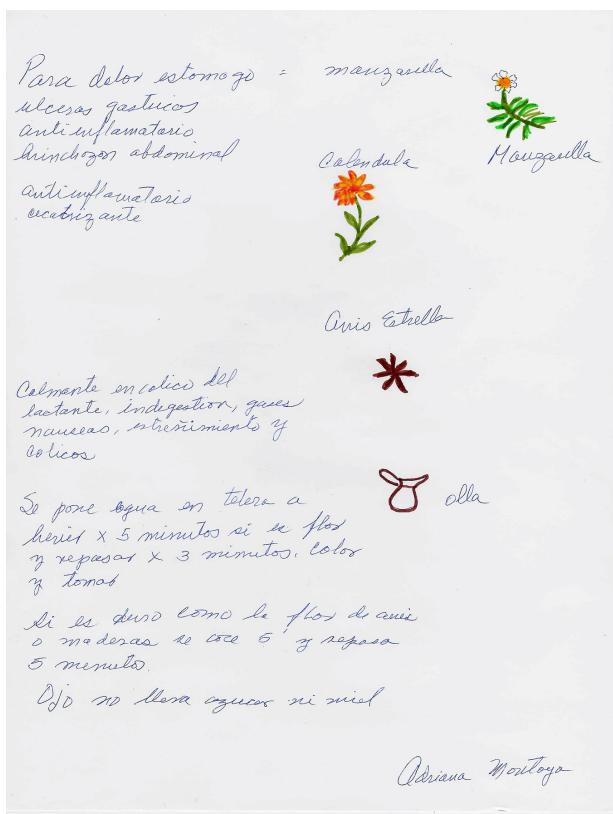 Para dolor estomago = manzanilla
ulceras gastricos
antiinflamatorio
hrinchazon abdominal
Calendula
Manzanilla
antiinflamatorio
cicatrizante
Anis Estrella
Calmante en colico del
lactante, indigestion, gases
nauceas, estreñimiento y
Colicos
Se pone agua en tetera a
hervir x 5 minutos si es flor
y repasar x 3 minutos, colar
y tomar
olla
Si es duro como la flor de anis
o maderas se coce 5' y repasa
5 menutos.
Ojo no lleva azucar ni miel
Adriana Montoya